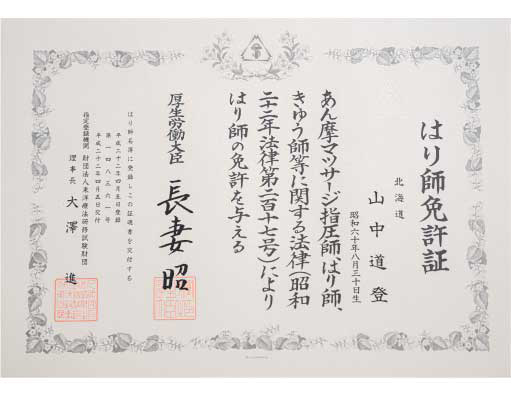 はり師免許証
北海道
山中道登
昭和六十年八月三十日生
あん摩マツサージ指圧師、はり師、
きゆう師等に関する法律(昭和
二十二年法律第二百十七号)により
はり師の免許を与える
厚生労働大臣 長妻昭
はり師名簿に登録しこの証明書を交付する
平成二十二年四月五日登録
第一四八三六一号
平成二十二年四月五日交付
指定登録機関 財団法人東洋療法研修試験財団
理事長 大澤進